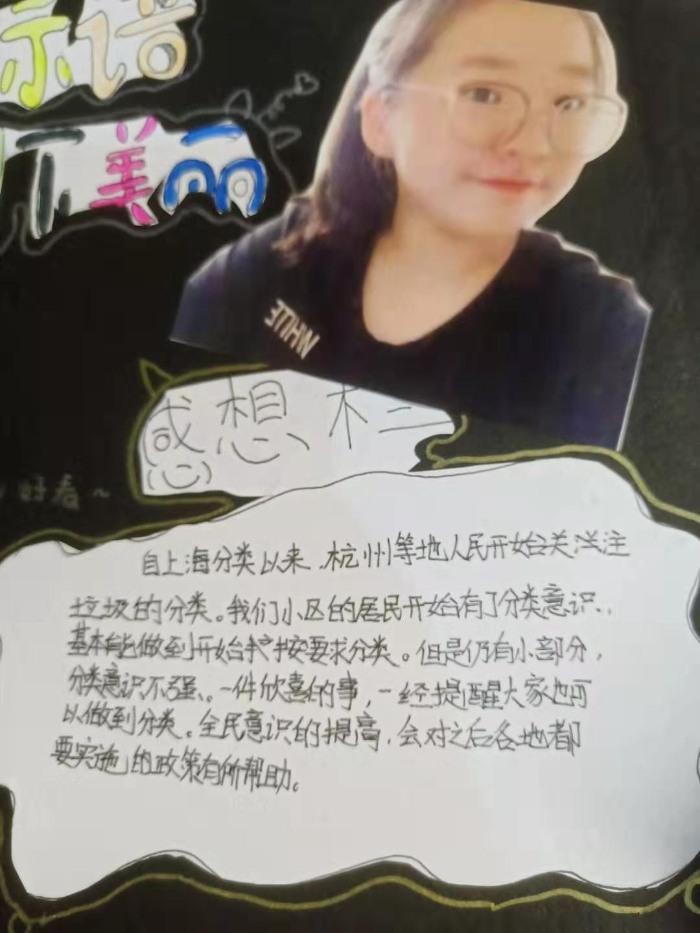 标语
美丽
WHITE
感想栏
好看~
自上海分类以来，杭州等地人民开始关注
垃圾的分类。我们小区的居民开始有了分类意识，
基本能做到开始按要求分类。但是仍有小部分，
分类意识不强。一件欣喜的事，一经提醒大家也可
以做到分类。全民意识的提高，会对之后各地都
要实施的政策有所帮助。